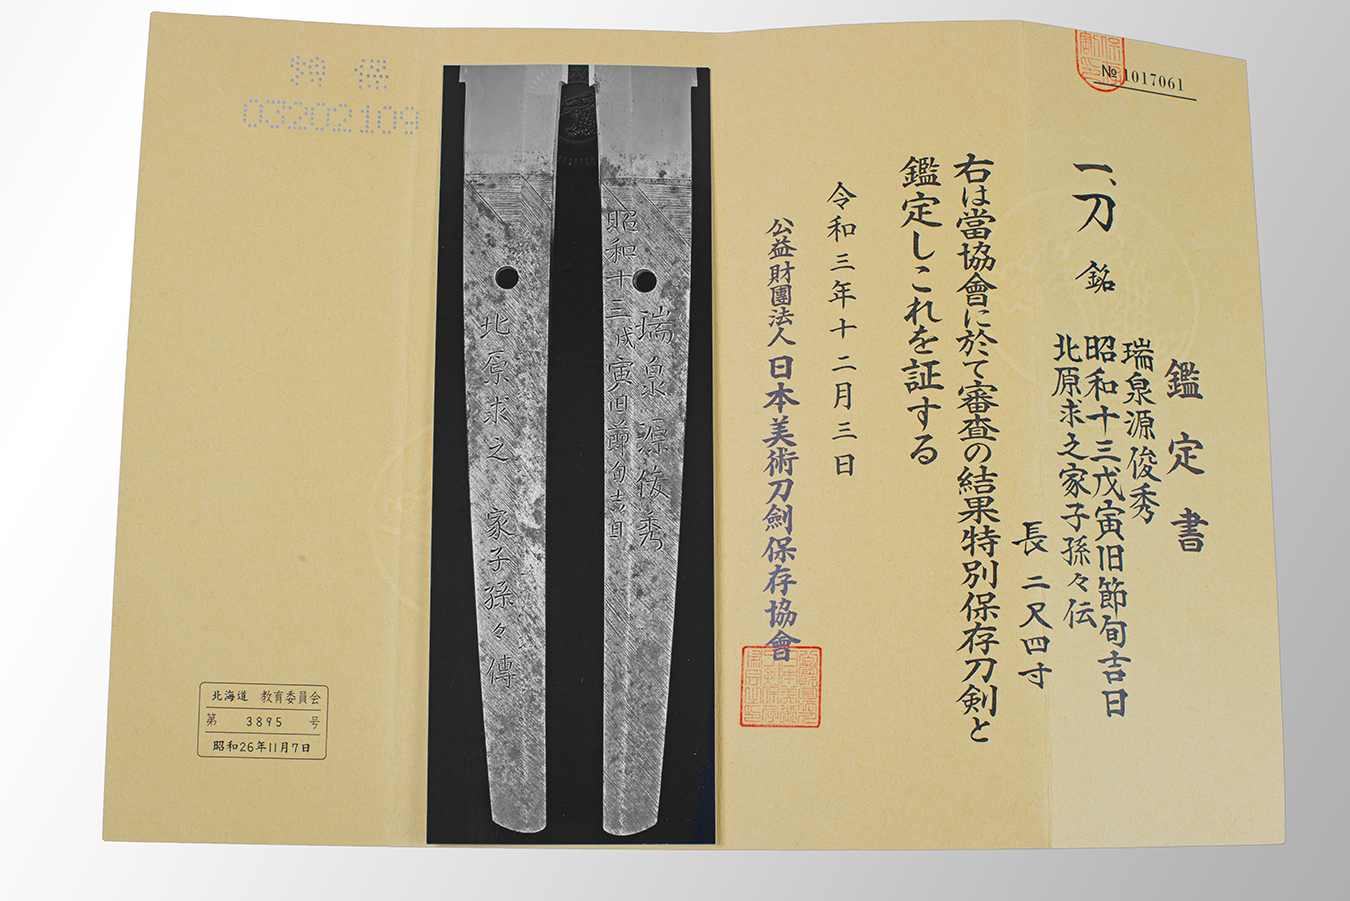 № 1017061
鑑定書
一、刀 銘
瑞泉源俊秀
昭和十三戊寅旧節旬吉日
北原求之家子孫々伝
長二又四寸
右は當協會に於て審査の結果特別保存刀剣と
鑑定しこれを証する
令和三年十二月三日
公益財團法人日本美術刀劍保存協會
瑞泉源俊秀
昭和十三戊寅旧節旬吉日
北原求之家子孫々傳
特保
03202109
北海道 教育委員会
第 3895 号
昭和26年11月7日